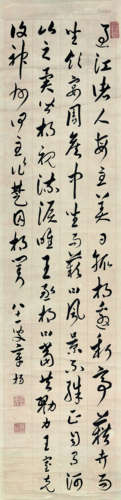 過江諸人每至美日輒相邀新亭藉卉而
坐飲宴周侯中坐而歎曰風景不殊正自有河
山之異皆相視流涙唯王丞相曰當共勠力王室克
復神州何至作楚囚相對 八十一叟章梫